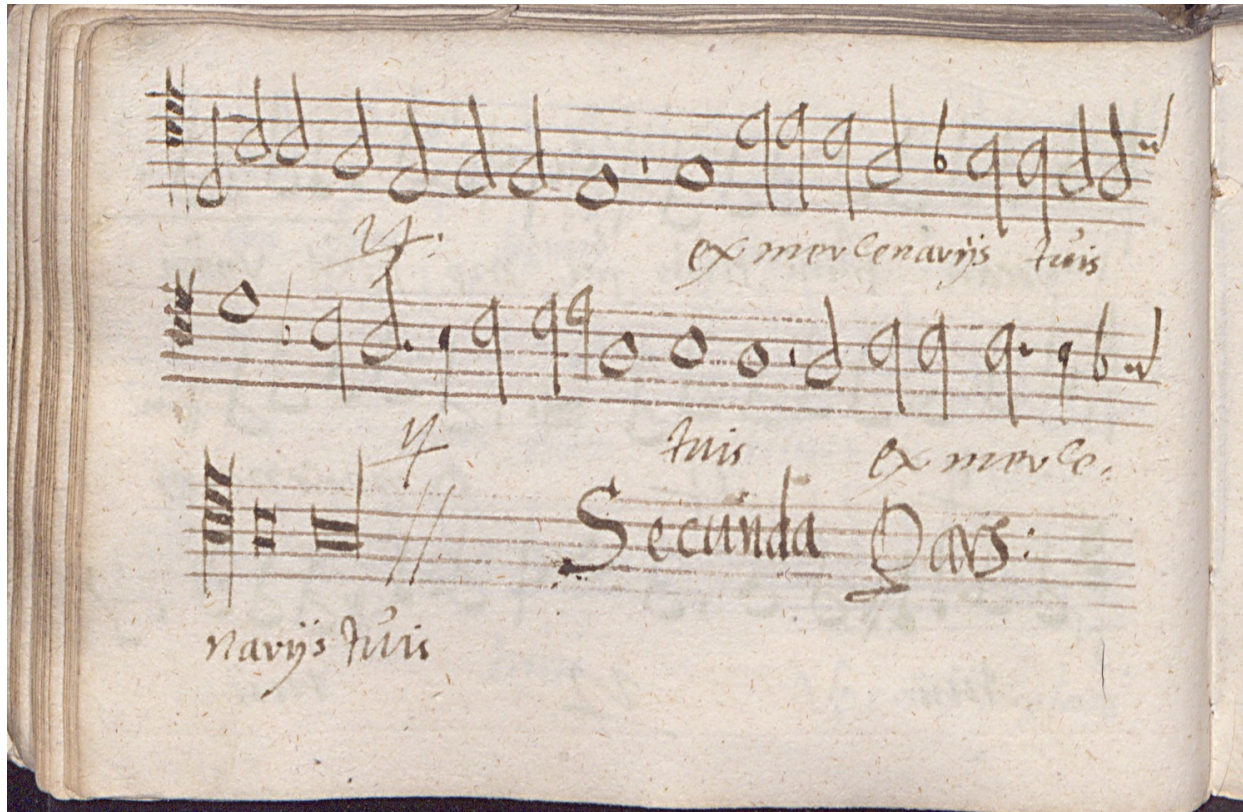 ij.
ex mercenarijs tuis
ij
tuis ex merce,
Secunda Pars:
narijs tuis